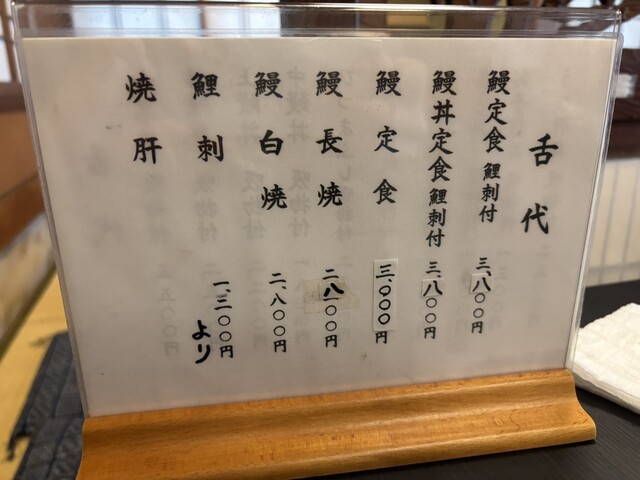 舌代
鰻定食 鯉刺付 三、八〇〇円
鰻丼定食 鯉刺付 三、八〇〇円
鰻定食 三、〇〇〇円
鰻長焼 二、八〇〇円
鰻白焼 二、八〇〇円
鯉刺 一、三〇〇円より
焼肝